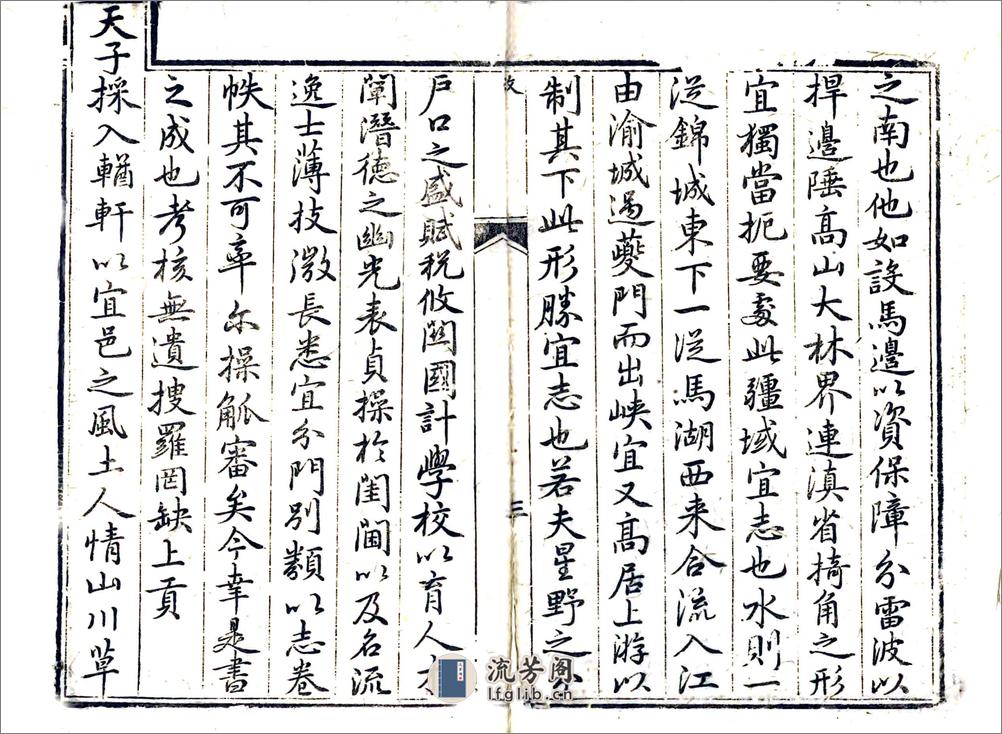 之南也他如設馬邊以資保障分雷波以
捍邊陲高山大林界連滇省掎角之形
宜獨當扼要處此疆域宜志也水則一
從錦城東下一從馬湖西来合流入江
由渝城過夔門而出峽宜又高居上游以
制其下此形勝宜志也若夫星野之分
三
戶口之盛賦稅攸關國計學校以育人才
闡潛德之幽光表貞操於閨閫以及名流
逸士薄技微長悉宜分門別類以志卷
帙其不可率尔操觚審矣今幸是書
之成也考核無遺搜羅罔缺上貢
天子採入輶軒以宜邑之風土人情山川草
流芳阁
lfglib.com